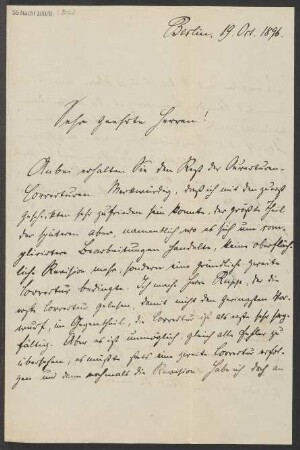 Berlin, 19 Oct. 1896.
Sehr geehrte Herren!
Anbei erhalten Sie den Rest der Ouverturen-
Correcturen. Merkwürdig, daß ich mit den zuerst
geschickten sehr zufrieden sein konnte, der größte Theil
der späteren aber, namentlich wo es sich um com-
plicirtere Bearbeitungen handelte, keine oberfläch-
liche Revision mehr, sondern eine gründlich zweite
Correctur bedingte. Ich mache Herrn Rupp, der die
erste Correctur gelesen, damit nicht den geringsten Vor-
wurf, im Gegentheil, die Correctur ist als erste sehr sorg-
fältig. Aber es ist unmöglich, gleich alle Fehler zu
übersehen, es müßte stets eine zweite Correctur erfol-
gen und dann nochmals die Revision. Habe ich doch an